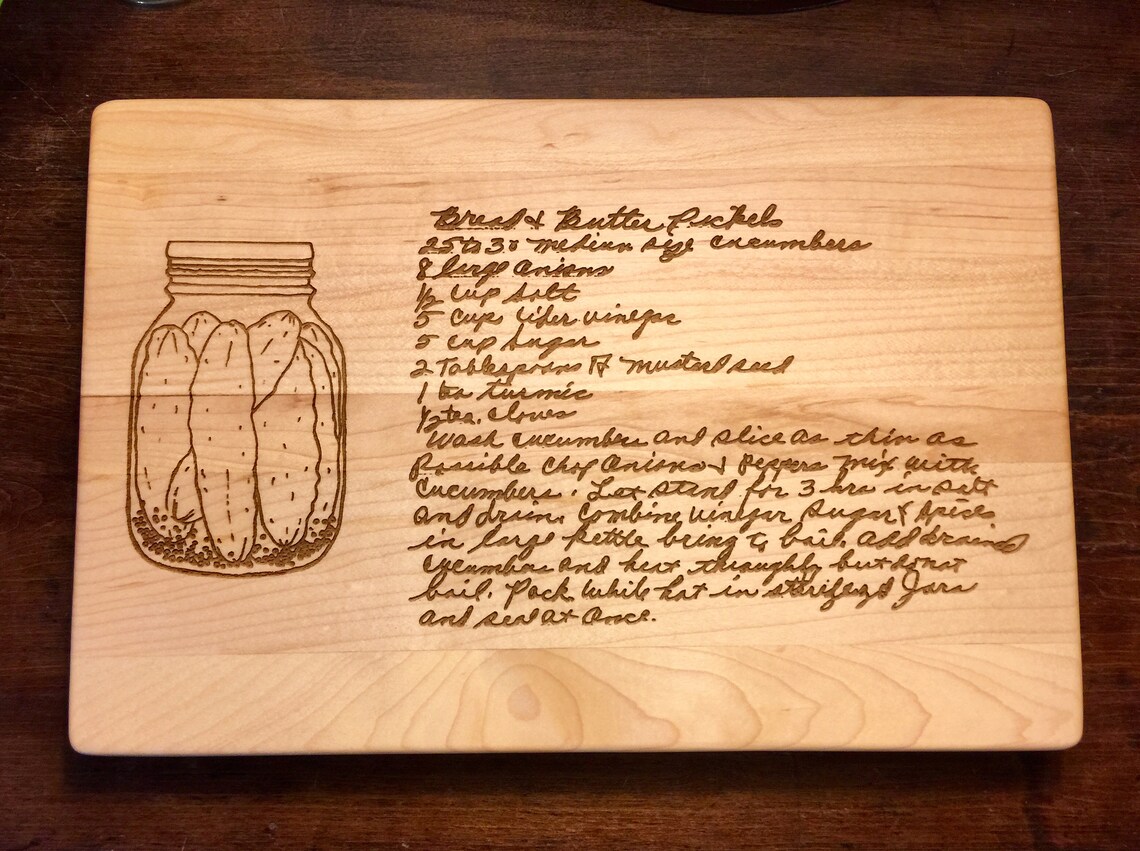 Bread & Butter Pickels
25 to 30 medium size cucumbers
8 large onions
1/2 cup salt
5 cups cider vinegar
5 cup sugar
2 Tablespoons of mustard seed
1 tea turmic
1/2 tea. cloves
Wash cucumbers and slice as thin as
possible Chop onions & peppers mix with
cucumbers. Let stand for 3 hrs in salt
and drain. Combine vinegar sugar & spices
in large kettle bring to boil. add drained
cucumbers and heat throughly but do not
boil. Pack while hot in sterilyzed Jars
and seal at once.